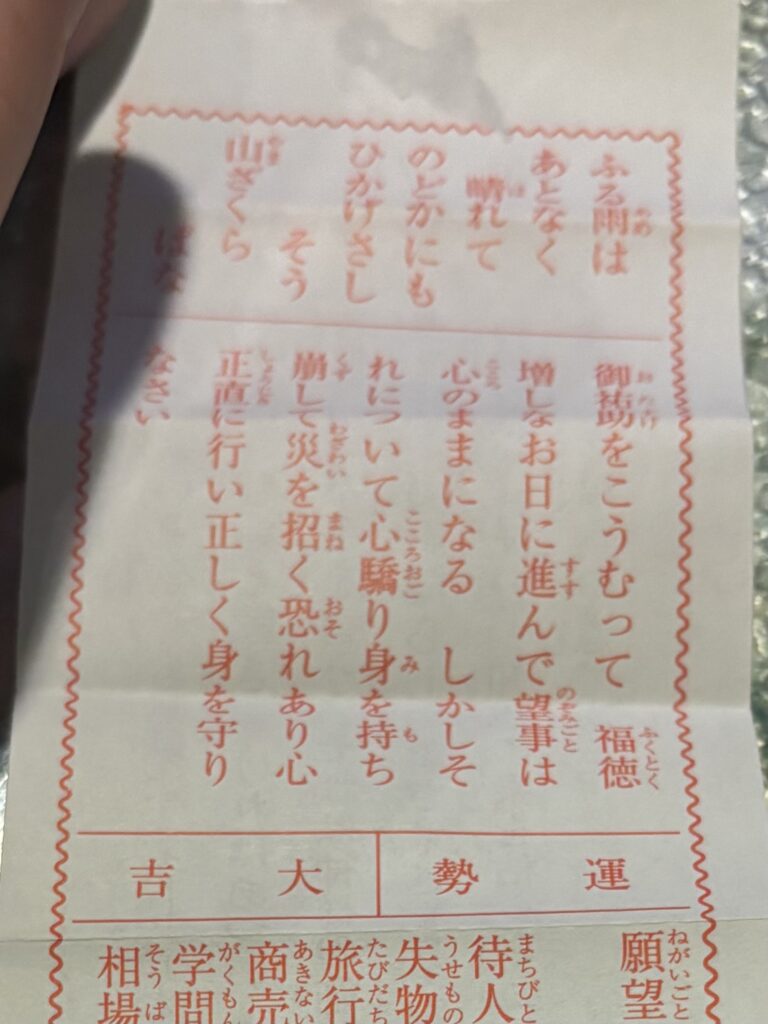 ふる雨は
あとなく
晴れて
のどかにも
ひかげさし
そう
山ざくら
ばな
御祐助をこうむって　福徳
増しなお日に進んで望事は
心のままになる　しかしそ
れについて心驕り身を持ち
崩して災を招く恐れあり心
正直に行い正しく身を守り
なさい
運勢　大吉
願望
待人
失物
旅行
商売
学問
相場